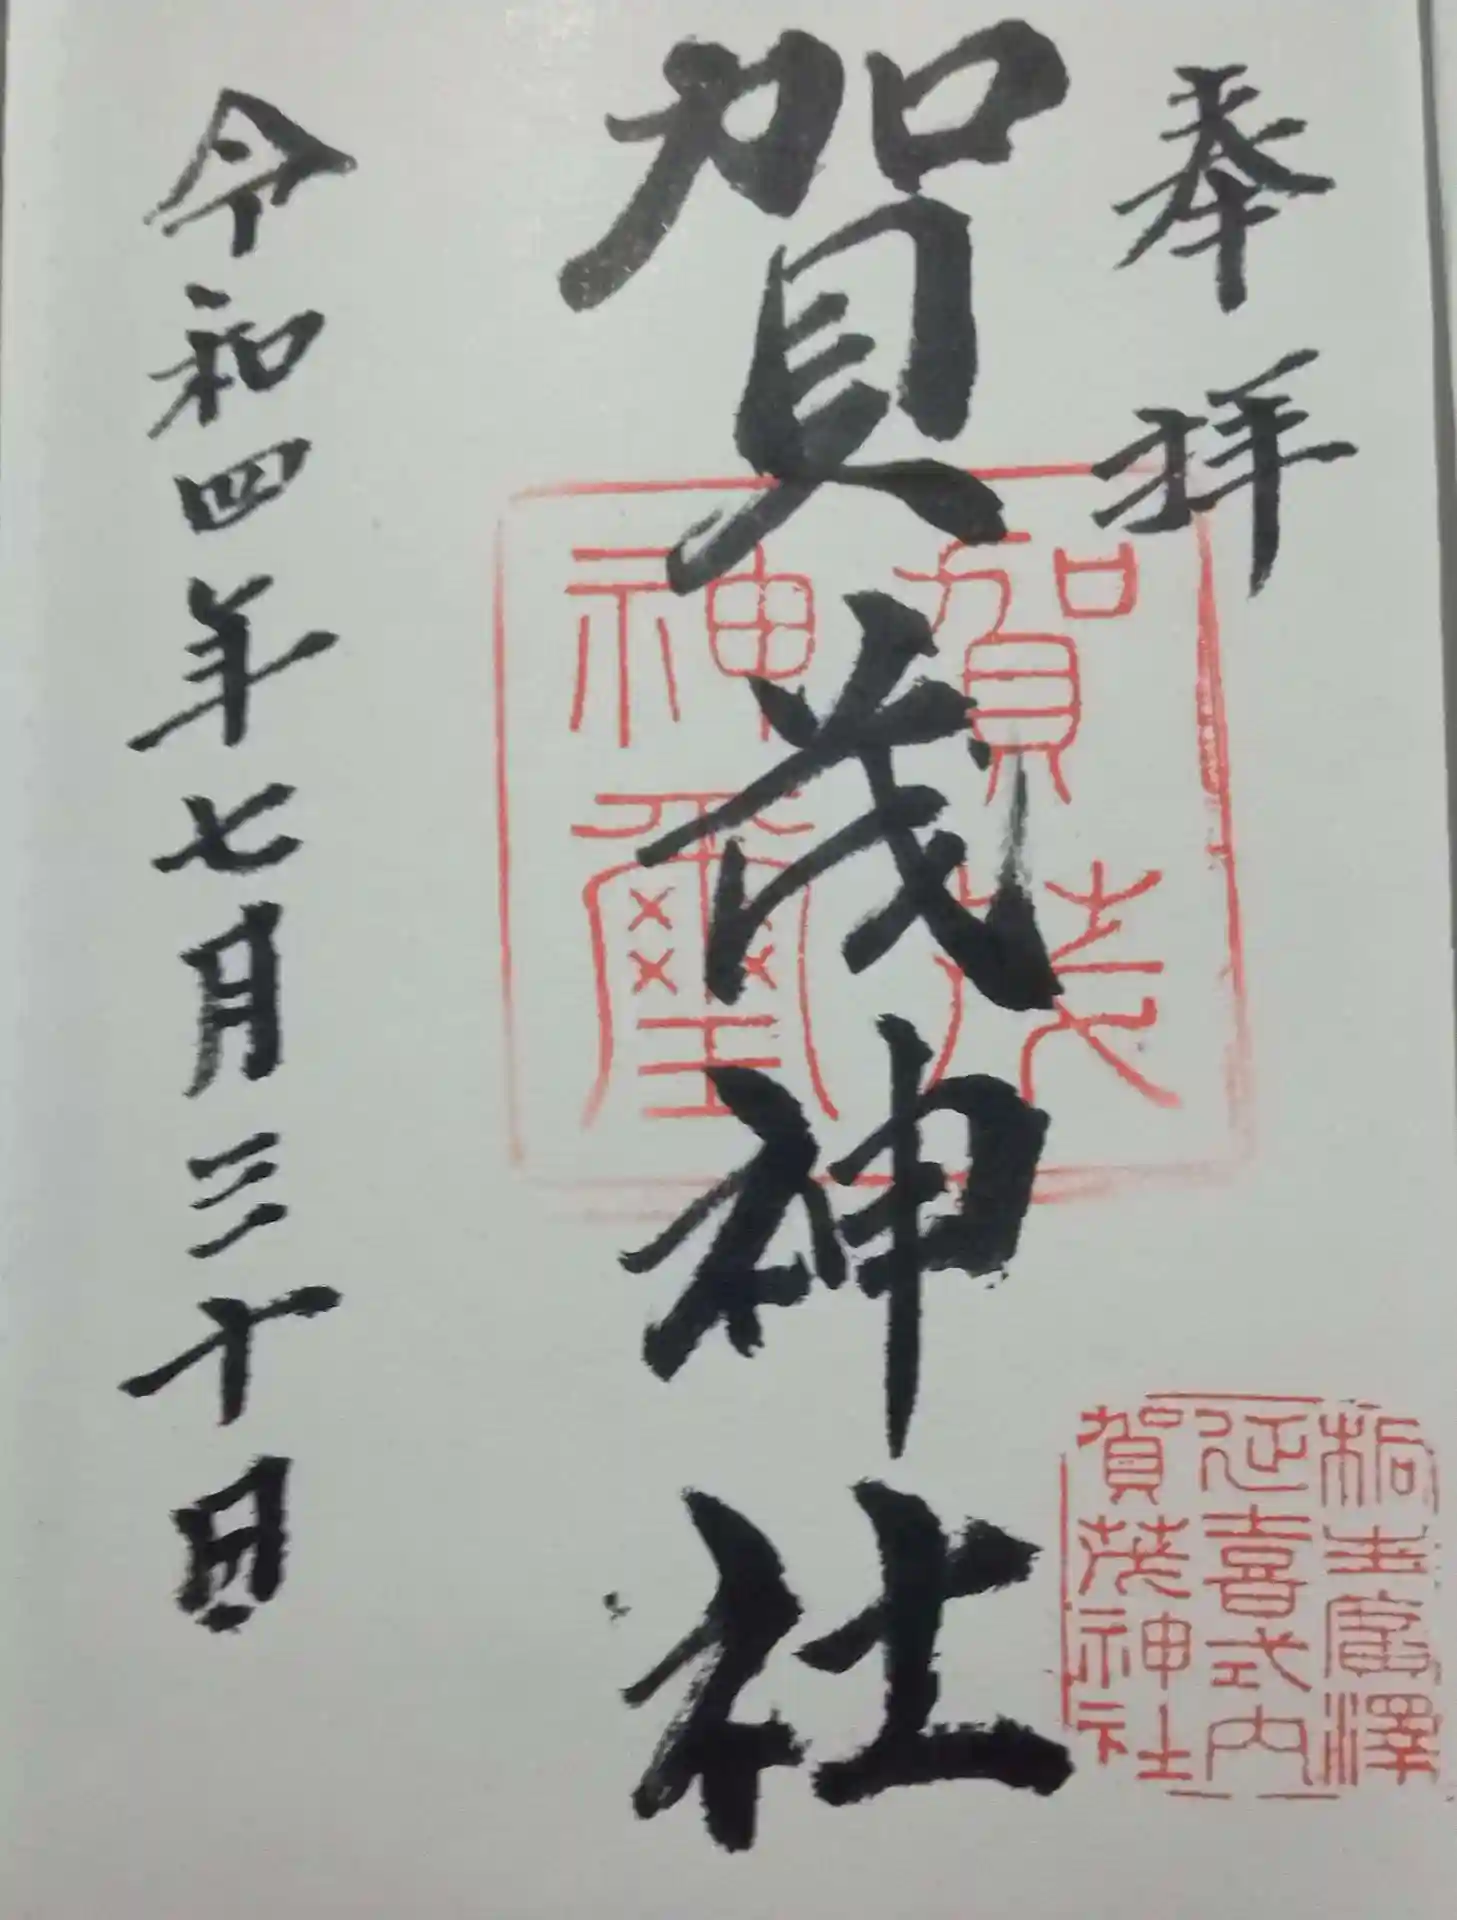 奉拝
賀茂神社
令和四年七月三十日
賀茂
神璽
桐生廣澤
延喜式内
賀茂神社